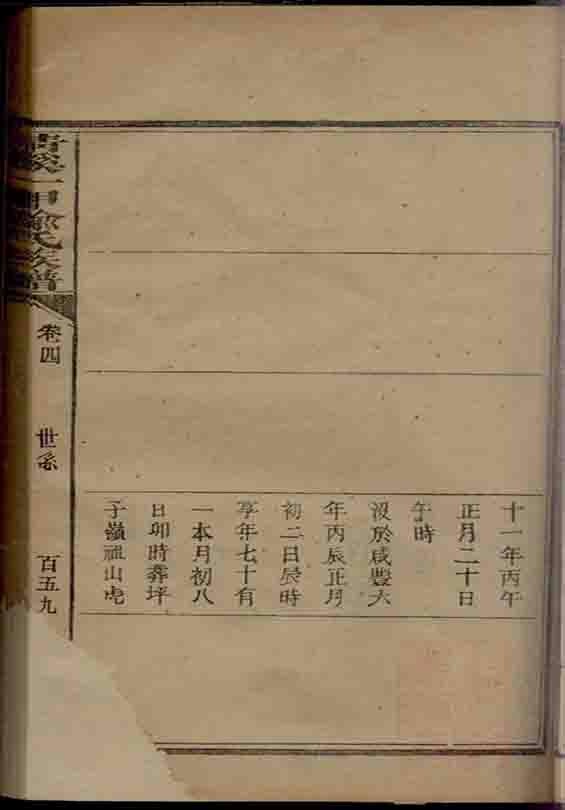 十一年丙午
正月二十日
午時
沒於咸豐六
年丙辰正月
初二日辰時
享年七十有
一本月初八
日卯時葬坪
子嶺祖山虎
溪一甲氏族譜
卷四
世系
百五九